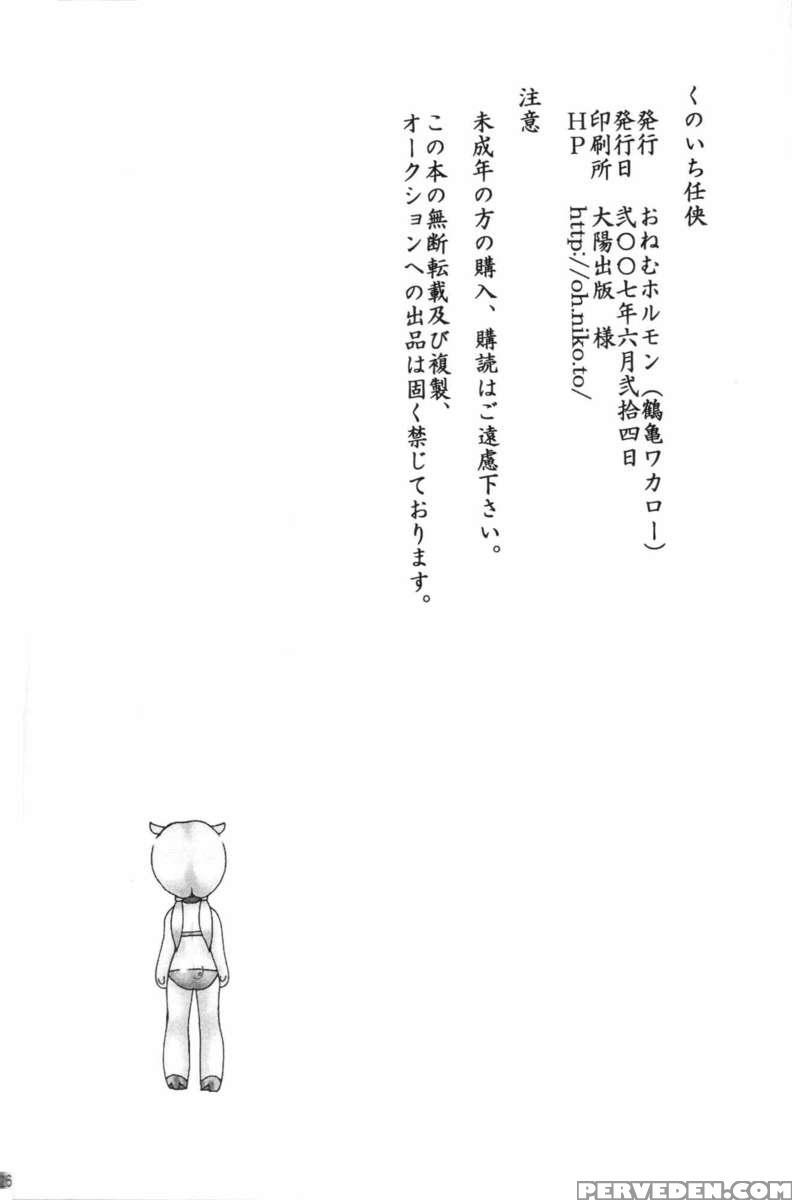 くのいち任侠
発行 おねむホルモン(鶴亀ワカロー)
発行日 弐〇〇七年六月弐拾四日
印刷所 大陽出版 様
HP http://oh.niko.to/
注意
未成年の方の購入、購読はご遠慮下さい。
この本の無断転載及び複製、
オークションへの出品は固く禁じております。
26
PERVEDEN.COM